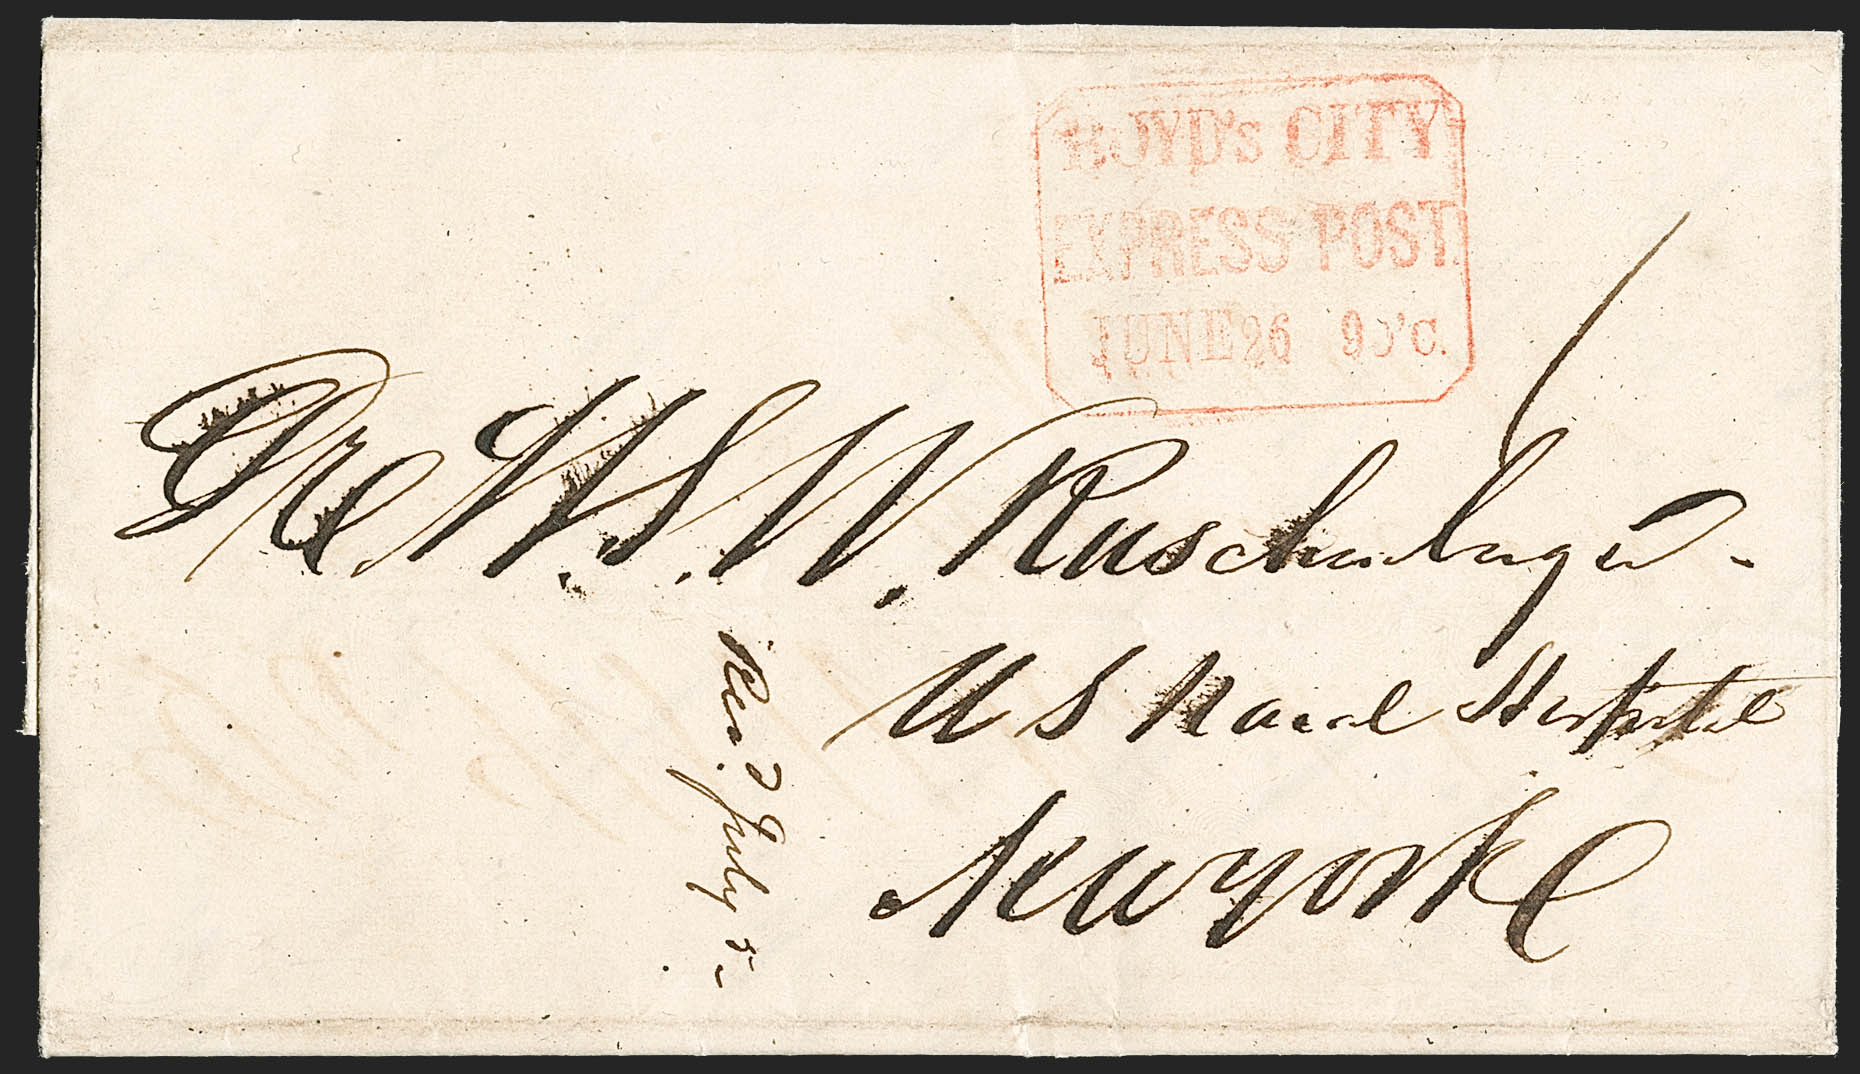 BOYD's CITY
EXPRESS POST.
JUNE 26 9 O'C.
Dr. W. S. W. Ruschenberger
U S Naval Hospital
New York
Rec.d July 5